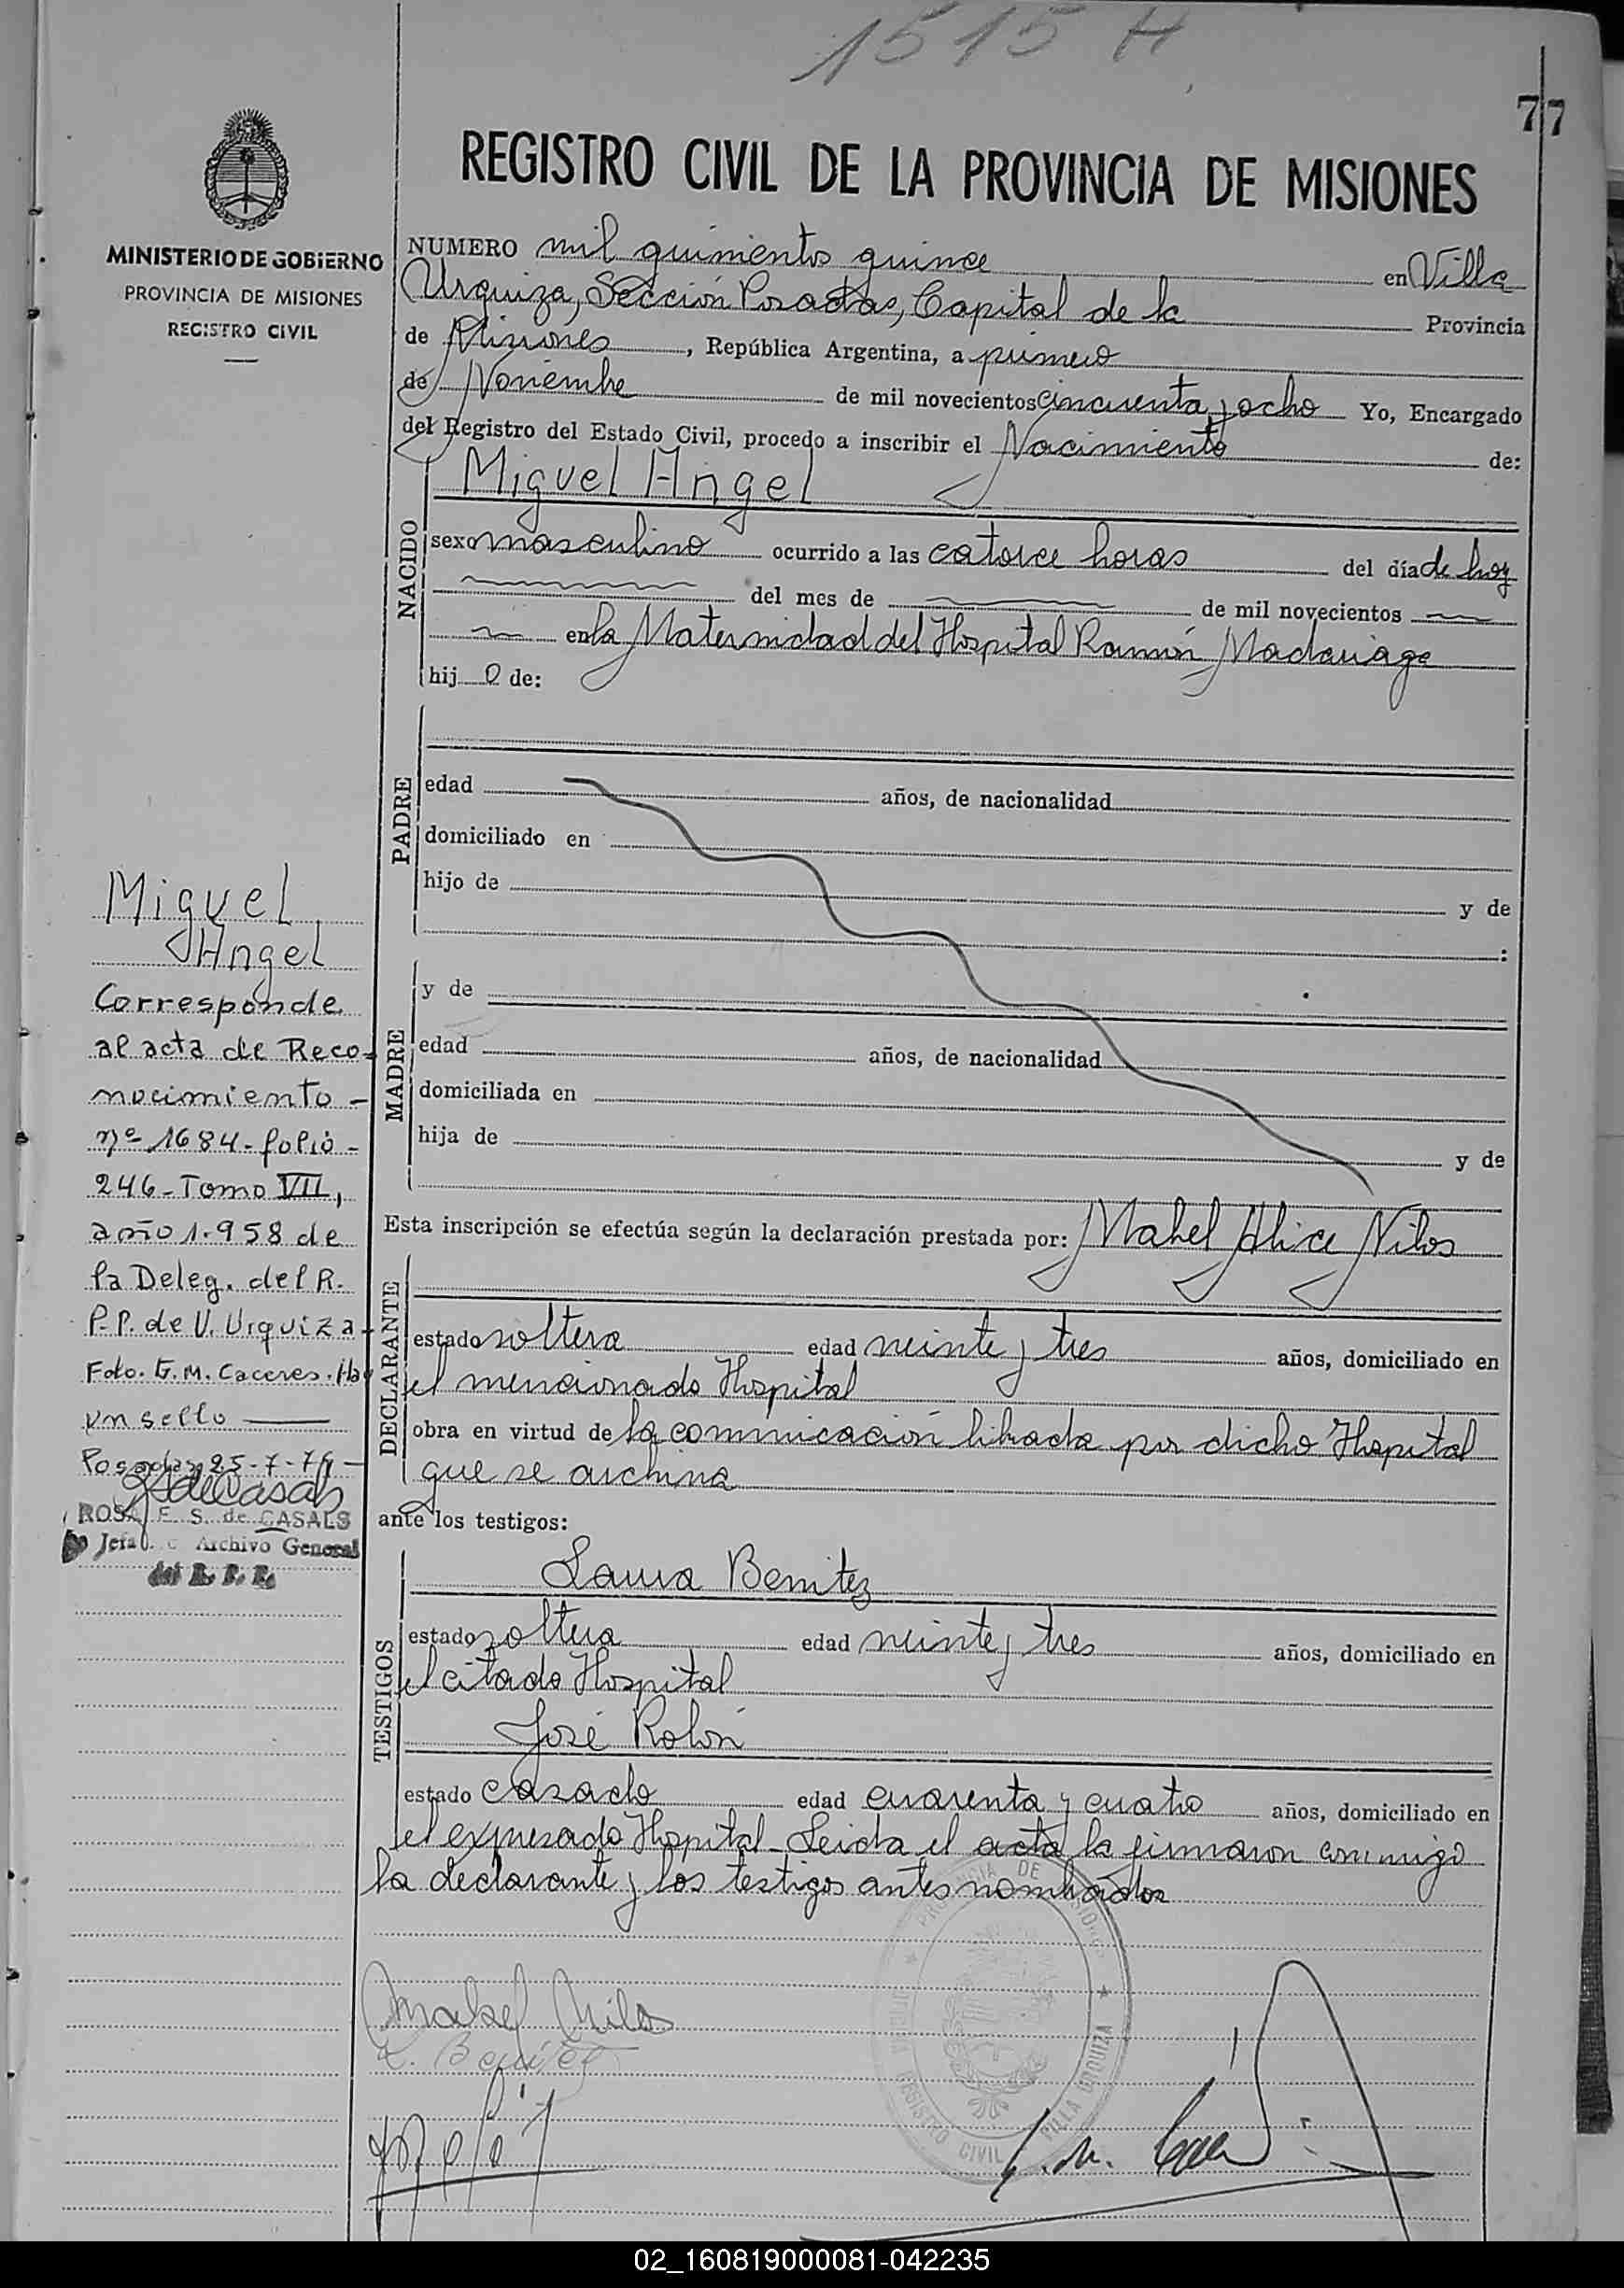 1515 H
77
REGISTRO CIVIL DE LA PROVINCIA DE MISIONES
MINISTERIO DE GOBIERNO
PROVINCIA DE MISIONES
REGISTRO CIVIL
NUMERO mil quinientos quince en Villa
Urquiza, Sección Posadas, Capital de la Provincia
de Misiones, República Argentina, a primero
de Noviembre de mil novecientos cincuenta y ocho Yo, Encargado
del Registro del Estado Civil, procedo a inscribir el Nacimiento de:
NACIDO
Miguel Angel
sexo masculino ocurrido a las catorce horas del día de hoy
del mes de de mil novecientos
en la Maternidad del Hospital Ramón Madariaga
hijo de:
PADRE
edad años, de nacionalidad
domiciliado en
hijo de y de
:
MADRE
y de
edad años, de nacionalidad
domiciliada en
hija de y de
Esta inscripción se efectúa según la declaración prestada por: Mabel Alice Nilos
DECLARANTE
estado soltera edad veinte y tres años, domiciliado en
el mencionado Hospital
obra en virtud de la comunicación librada por dicho Hospital
que se archiva
ante los testigos:
TESTIGOS
Laura Benitez
estado soltera edad veinte y tres años, domiciliado en
el citado Hospital
José Rolón
estado casado edad cuarenta y cuatro años, domiciliado en
el expresado Hospital - Leida el acta la firmaron conmigo
la declarante y los testigos antes nombrados
Miguel
Angel
Corresponde
al acta de Reco-
nocimiento -
nº 1684 - folio -
246 - Tomo VII,
año 1.958 de
la Deleg. del R.
P.P. de V. Urquiza -
Fdo. G. M. Caceres. Hay
un sello
Posadas, 25-7-74 -
ROSA E. S. de CASALS
Jefa Archivo General
del R. P. P.
Mabel Nilos
L. Benítez
PROVINCIA DE MISIONES
REGISTRO CIVIL
VILLA URQUIZA
02_160819000081-042235